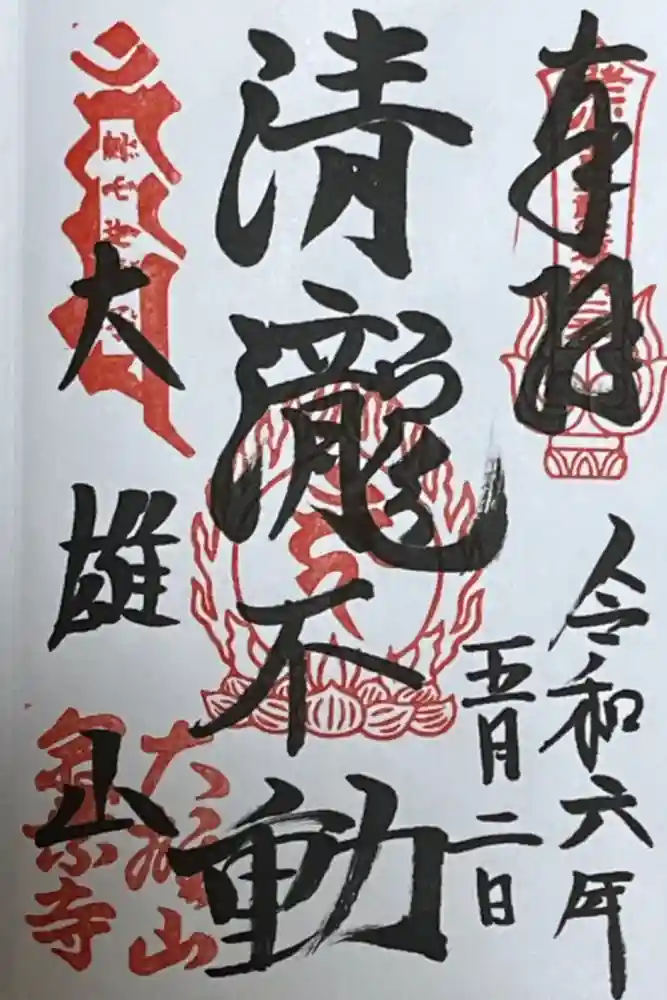 奉拝
令和六年
五月二日
清瀧不動
大雄山
大雄山